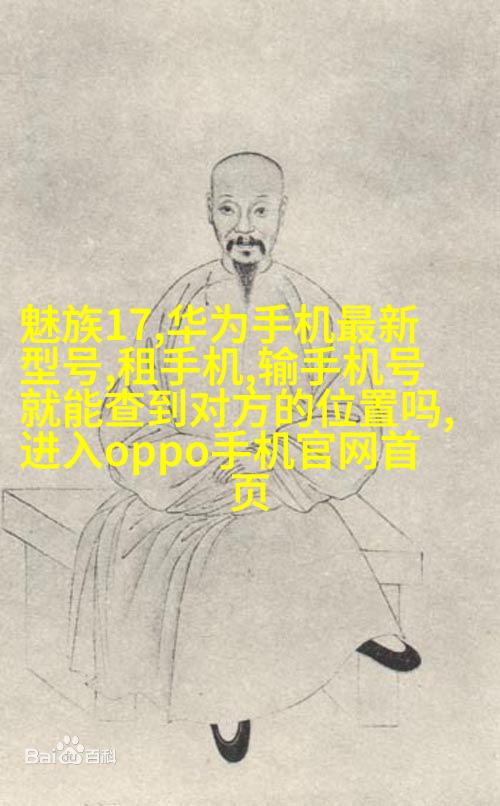 魅族17,华为手机最新
型号,租手机,输手机号
就能查到对方的位置吗,
进入oppo手机官网首
页
Bai du 百科